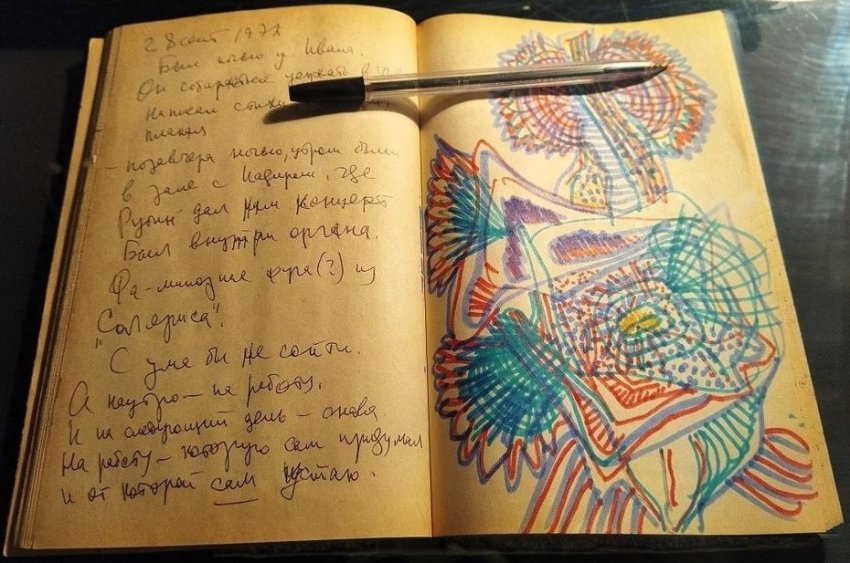 2 Sент 1972
Был ночью у Ивана.
Он старается
написал стихи
плакал
- позавчера ночью, утром были
в зале с Надиром, где
Рубин дал нам концерт
Был внутри органа.
Фа-минорная фуга (?) из
"Соляриса".
С ума бы не сойти.
А наутро - на работу.
И на следующий день - снова
На работу - которую сам придумал
и от которой сам устаю.